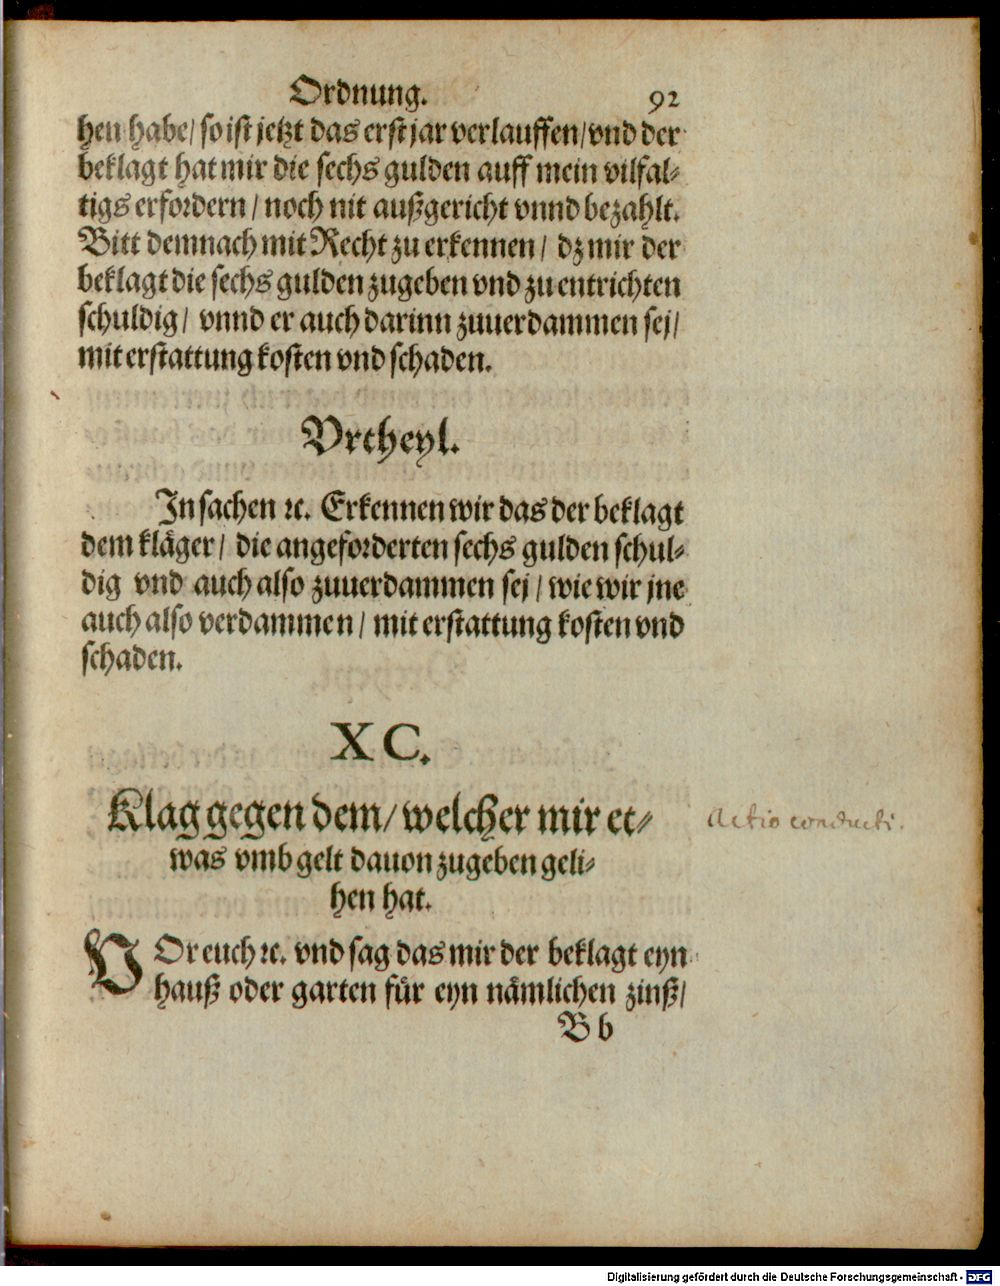 Ordnung. 92
hen habe/ so ist jetzt das erst jar verlauffen/ vnd der
beklagt hat mir die sechs gulden auff mein vilfal-
tigs erfordern/ noch nit außgericht vnnd bezahlt.
Bitt demnach mit Recht zu erkennen/ dz mir der
beklagt die sechs gulden zugeben vnd zu entrichten
schuldig/ vnnd er auch darinn zuuerdammen sej/
mit erstattung kosten vnd schaden.
Vrtheyl.
In sachen ꝛc. Erkennen wir das der beklagt
dem kläger/ die angeforderten sechs gulden schul-
dig vnd auch also zuuerdammen sej/ wie wir jne
auch also verdammen/ mit erstattung kosten vnd
schaden.
XC.
Klag gegen dem/ welcher mir et-
was vmb gelt dauon zugeben geli-
hen hat.
Actio conducti.
VOr euch ꝛc. vnd sag das mir der beklagt eyn
hauß oder garten für eyn nämlichen zinß/
B b
Digitalisierung gefördert durch die Deutsche Forschungsgemeinschaft - DFG